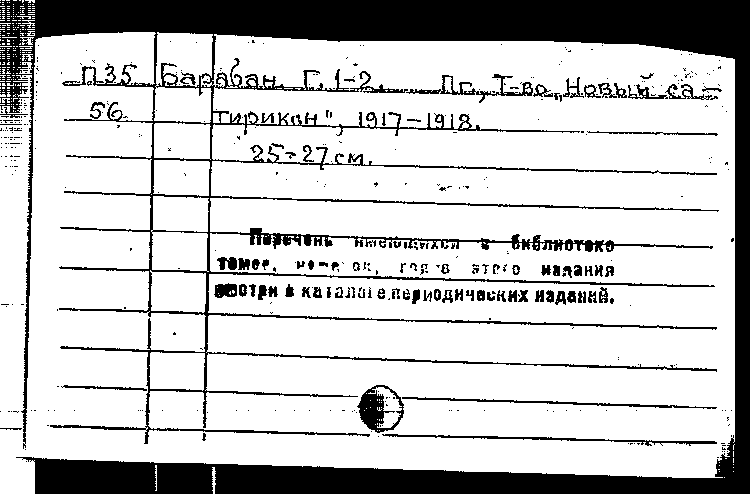 П35 Барабан. Г. 1-2. Пг., Т-во „Новый са-
56 тирикон", 1917-1918.
25-27 см.
Перечень имеющихся в библиотеке
томов, номеров, годов этого издания
смотри в каталоге периодических изданий.